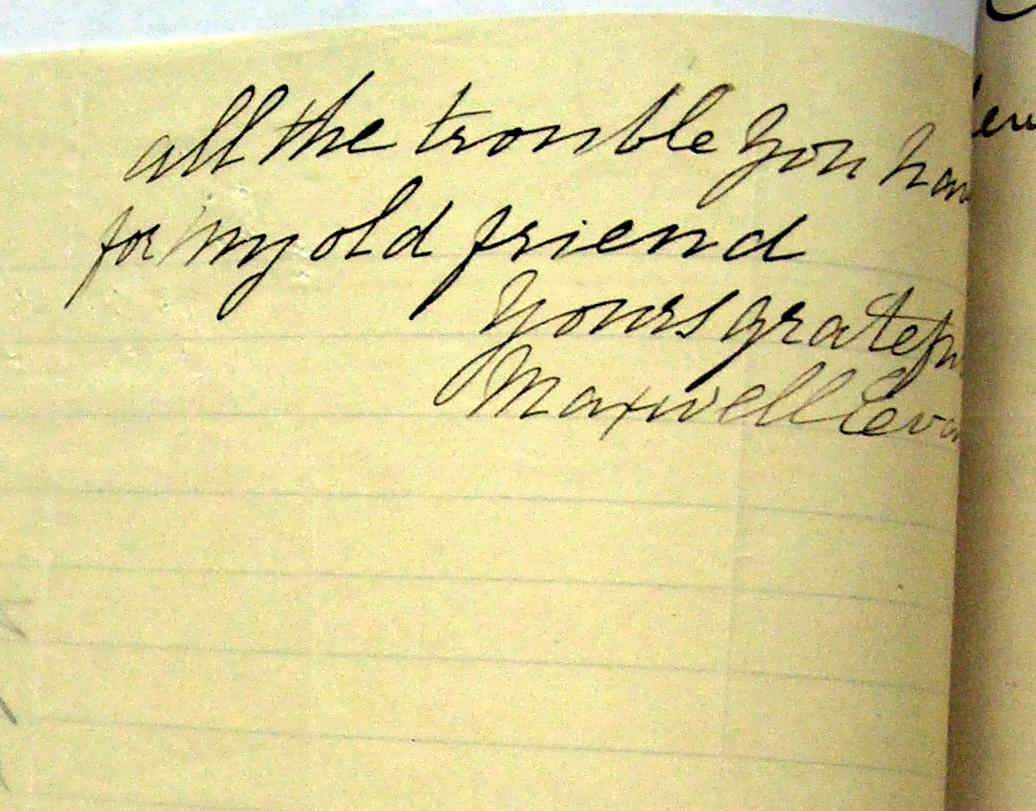 all the trouble you hav
for my old friend
Yours gratefu
Maxwell Evan